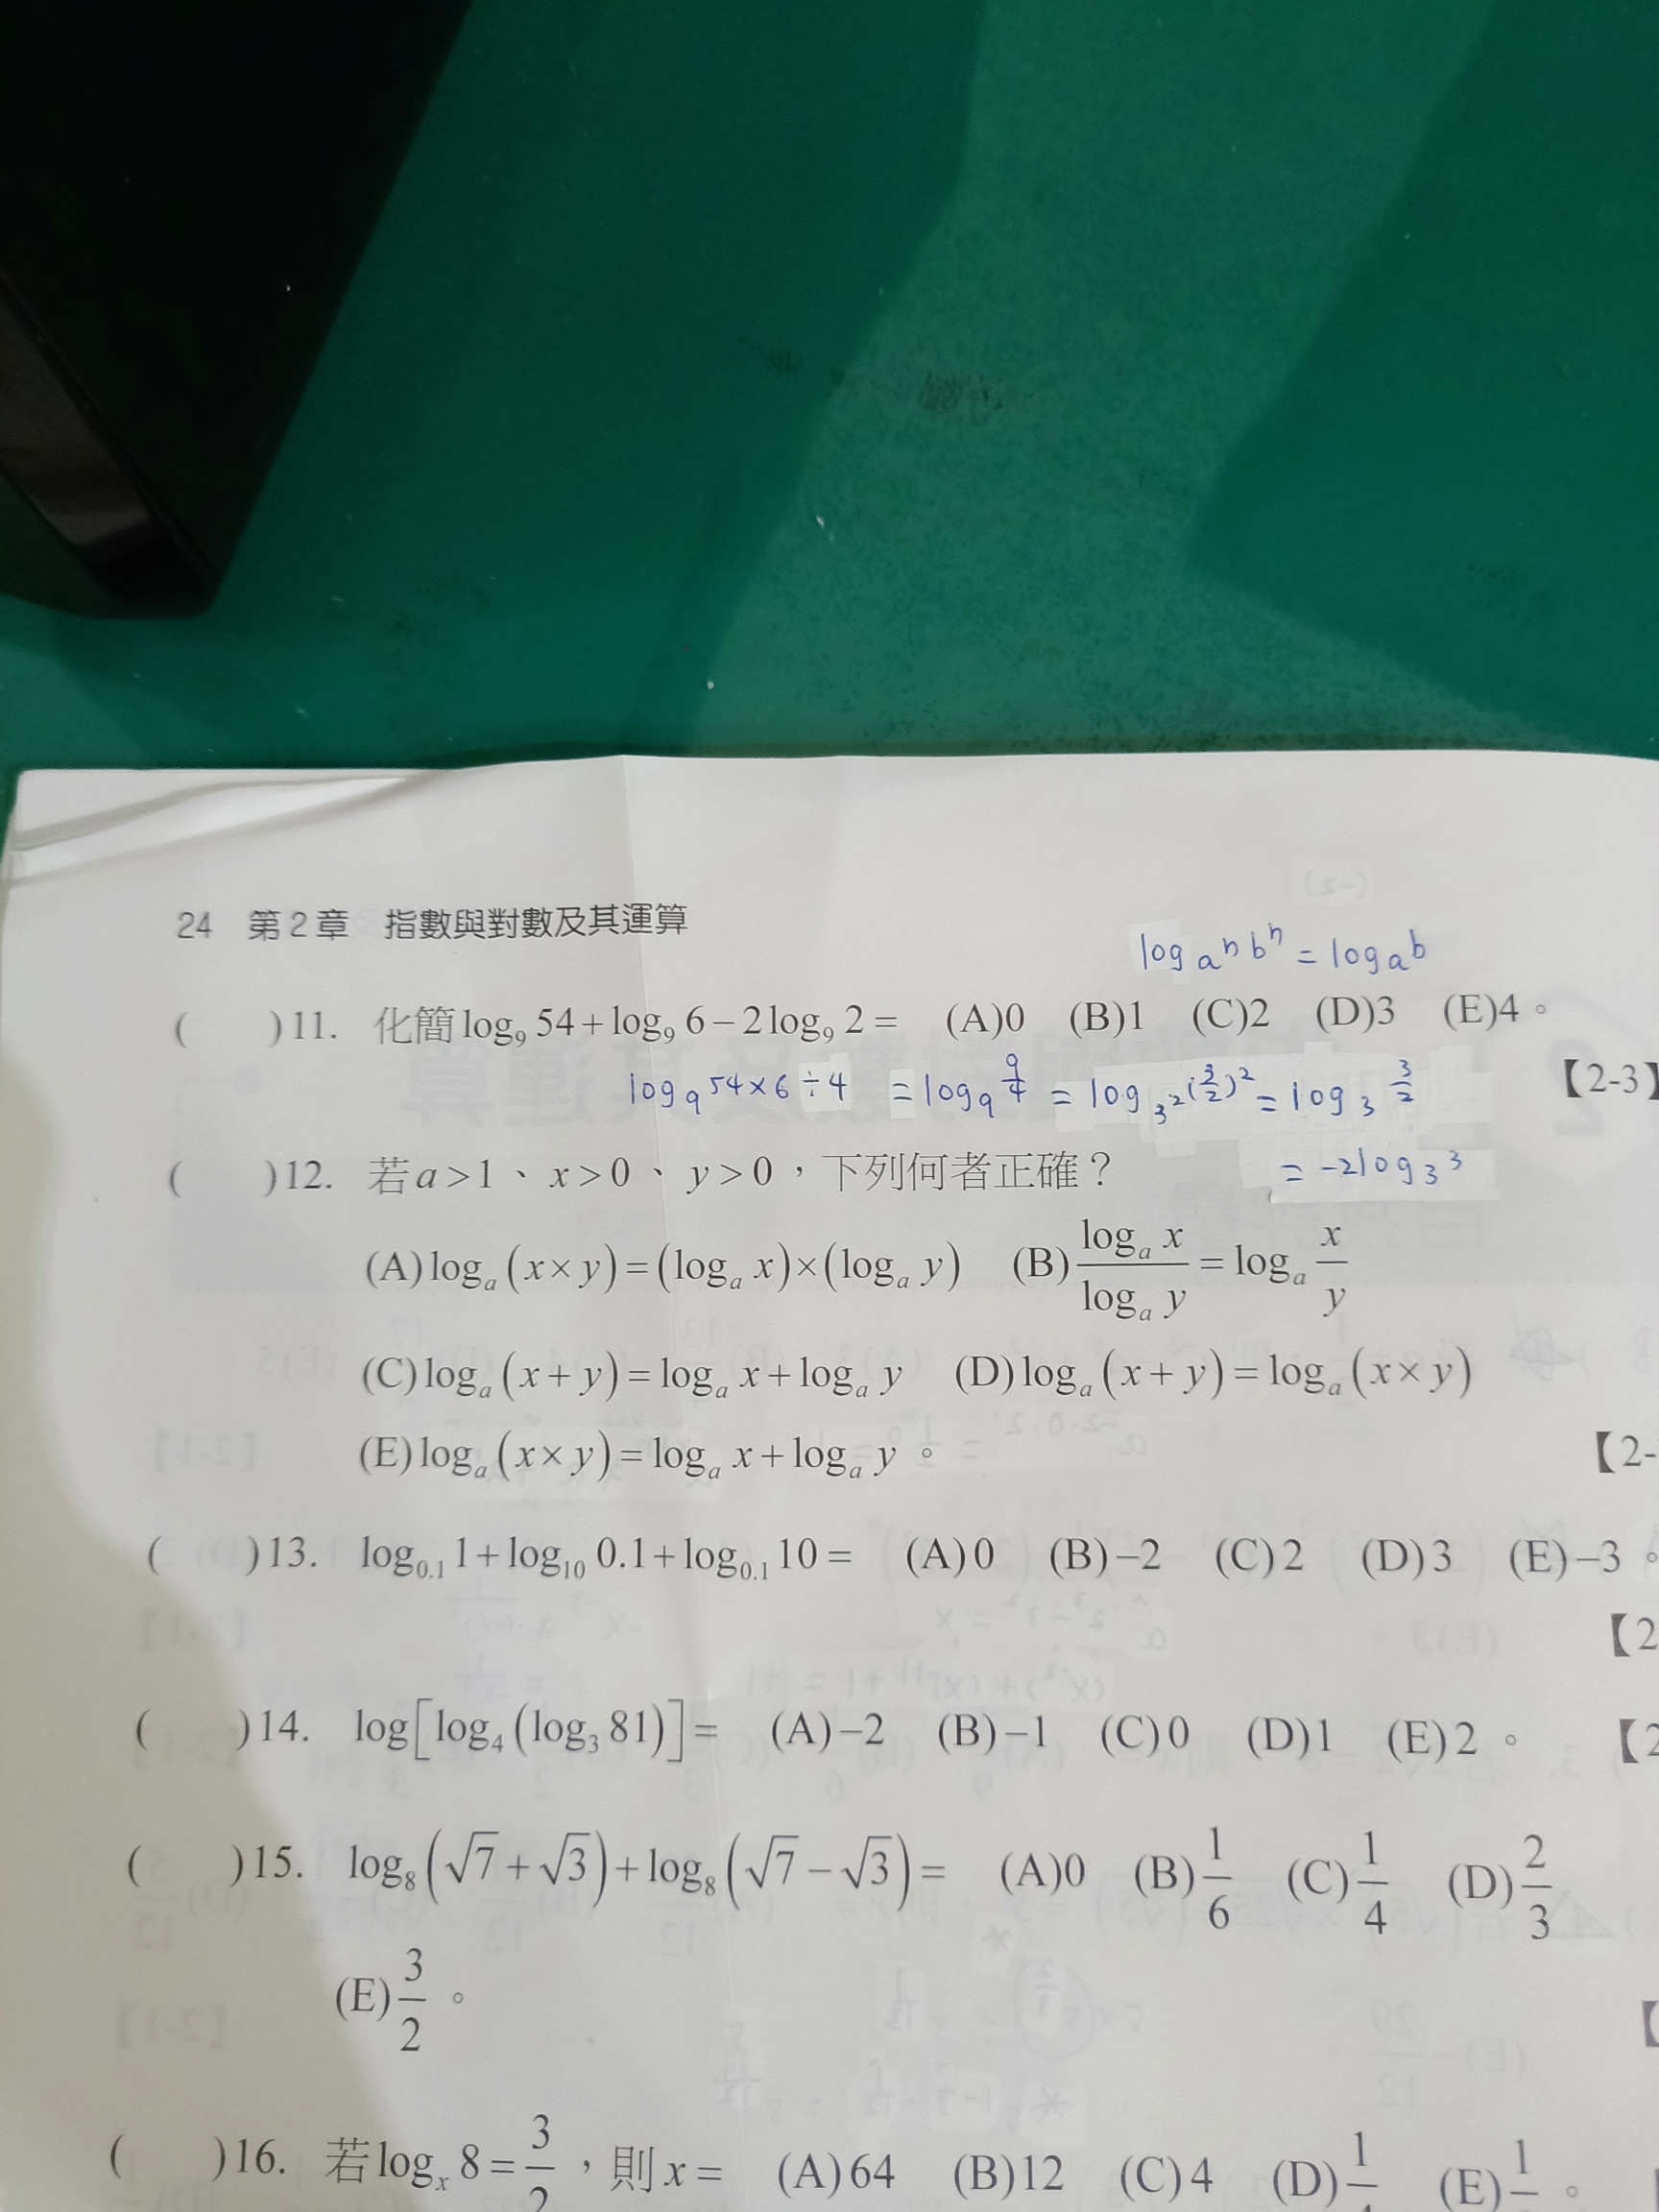 24 第2章 指數與對數及其運算
log aⁿ bⁿ = log a b
( )11. 化簡 log₉ 54 + log₉ 6 − 2 log₉ 2 = (A)0 (B)1 (C)2 (D)3 (E)4。
log₉ 54×6÷4 = log₉ 9/4 = log 3² (3/2)² = log₃ 3/2
【2-3】
= -2log₃ 3
( )12. 若 a > 1、x > 0、y > 0,下列何者正確?
(A) logₐ (x × y) = (logₐ x) × (logₐ y) (B) logₐ x / logₐ y = logₐ x/y
(C) logₐ (x + y) = logₐ x + logₐ y (D) logₐ (x + y) = logₐ (x × y)
(E) logₐ (x × y) = logₐ x + logₐ y。 【2-
( )13. log₀.₁ 1 + log₁₀ 0.1 + log₀.₁ 10 = (A) 0 (B) −2 (C) 2 (D) 3 (E) −3。
【2
( )14. log[log₄ (log₃ 81)] = (A) −2 (B) −1 (C) 0 (D) 1 (E) 2。 【2
( )15. log₈ (√7 + √3) + log₈ (√7 − √3) = (A)0 (B) 1/6 (C) 1/4 (D) 2/3
(E) 3/2。
【
( )16. 若 logₓ 8 = 3/2,則 x = (A) 64 (B) 12 (C) 4 (D) 1/ (E) 1/。